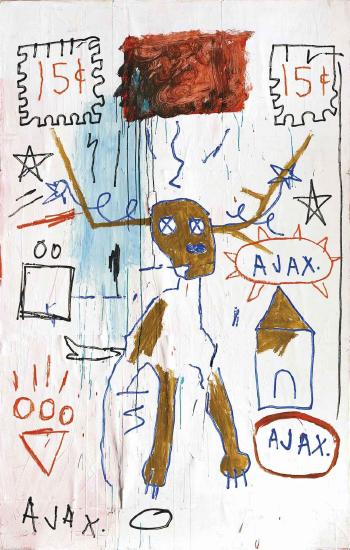 15¢
15¢
AJAX.
AJAX.
AJAX.